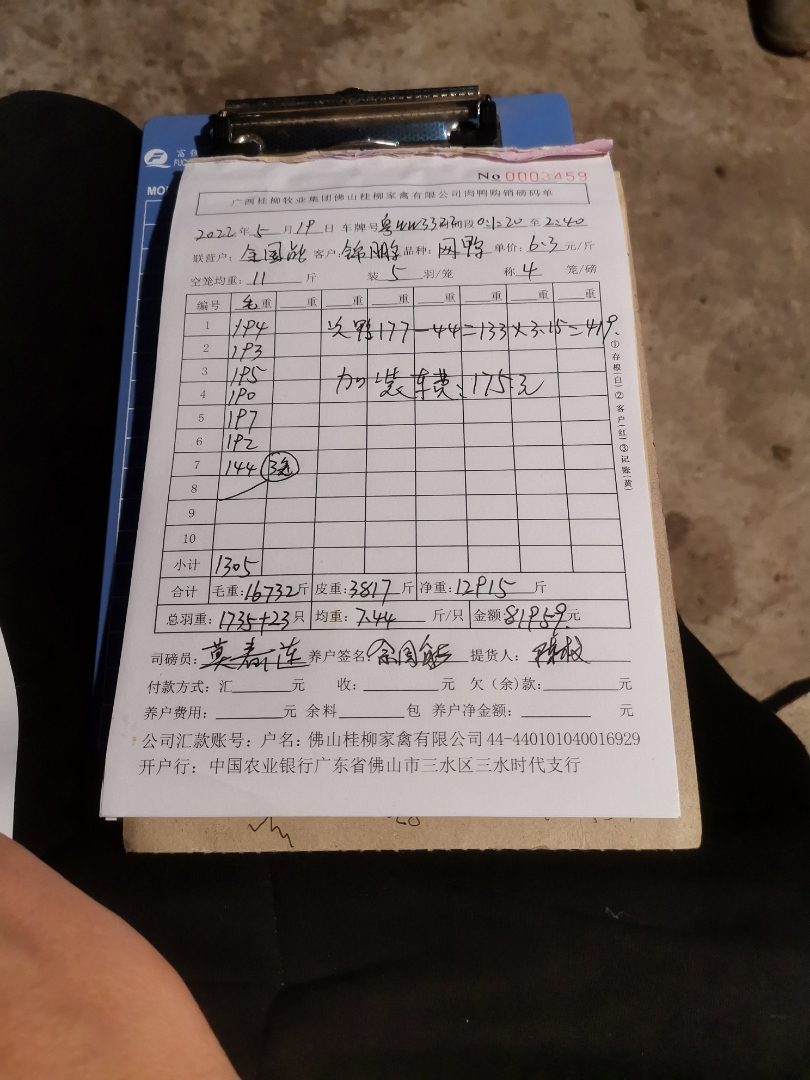 富强
FUQ
MO
No 0003459
广西桂柳牧业集团佛山桂柳家禽有限公司肉鸭购销磅码单
2022年5月19日 车牌号 粤WW3323 时间段 0:1:20 至 2:40
联营户: 客户: 锦鹏 品种: 网鸭 单价: 6.3 元/斤
空笼均重: 11 斤 装 5 羽/笼 称 4 笼/磅
编号 毛重 重 重 重 重 重 重 重
1 194 次鸭177-44=133×3.15=419.
2 193
3 195 加装车费:175元
4 190
5 197
6 192
7 144
8
9
10
小计 1305
合计 毛重:16732斤 皮重:3817斤 净重:12915斤
总羽重:1735+23只 均重:7.44 斤/只 金额81959.元
司磅员: 莫春莲 养户签名: 提货人:
付款方式:汇 元 收: 元 欠(余)款: 元
养户费用: 元 余料 包 养户净金额: 元
公司汇款账号:户名:佛山桂柳家禽有限公司44-440101040016929
开户行:中国农业银行广东省佛山市三水区三水时代支行
①存根(白)②客户(红)③记账(黄)